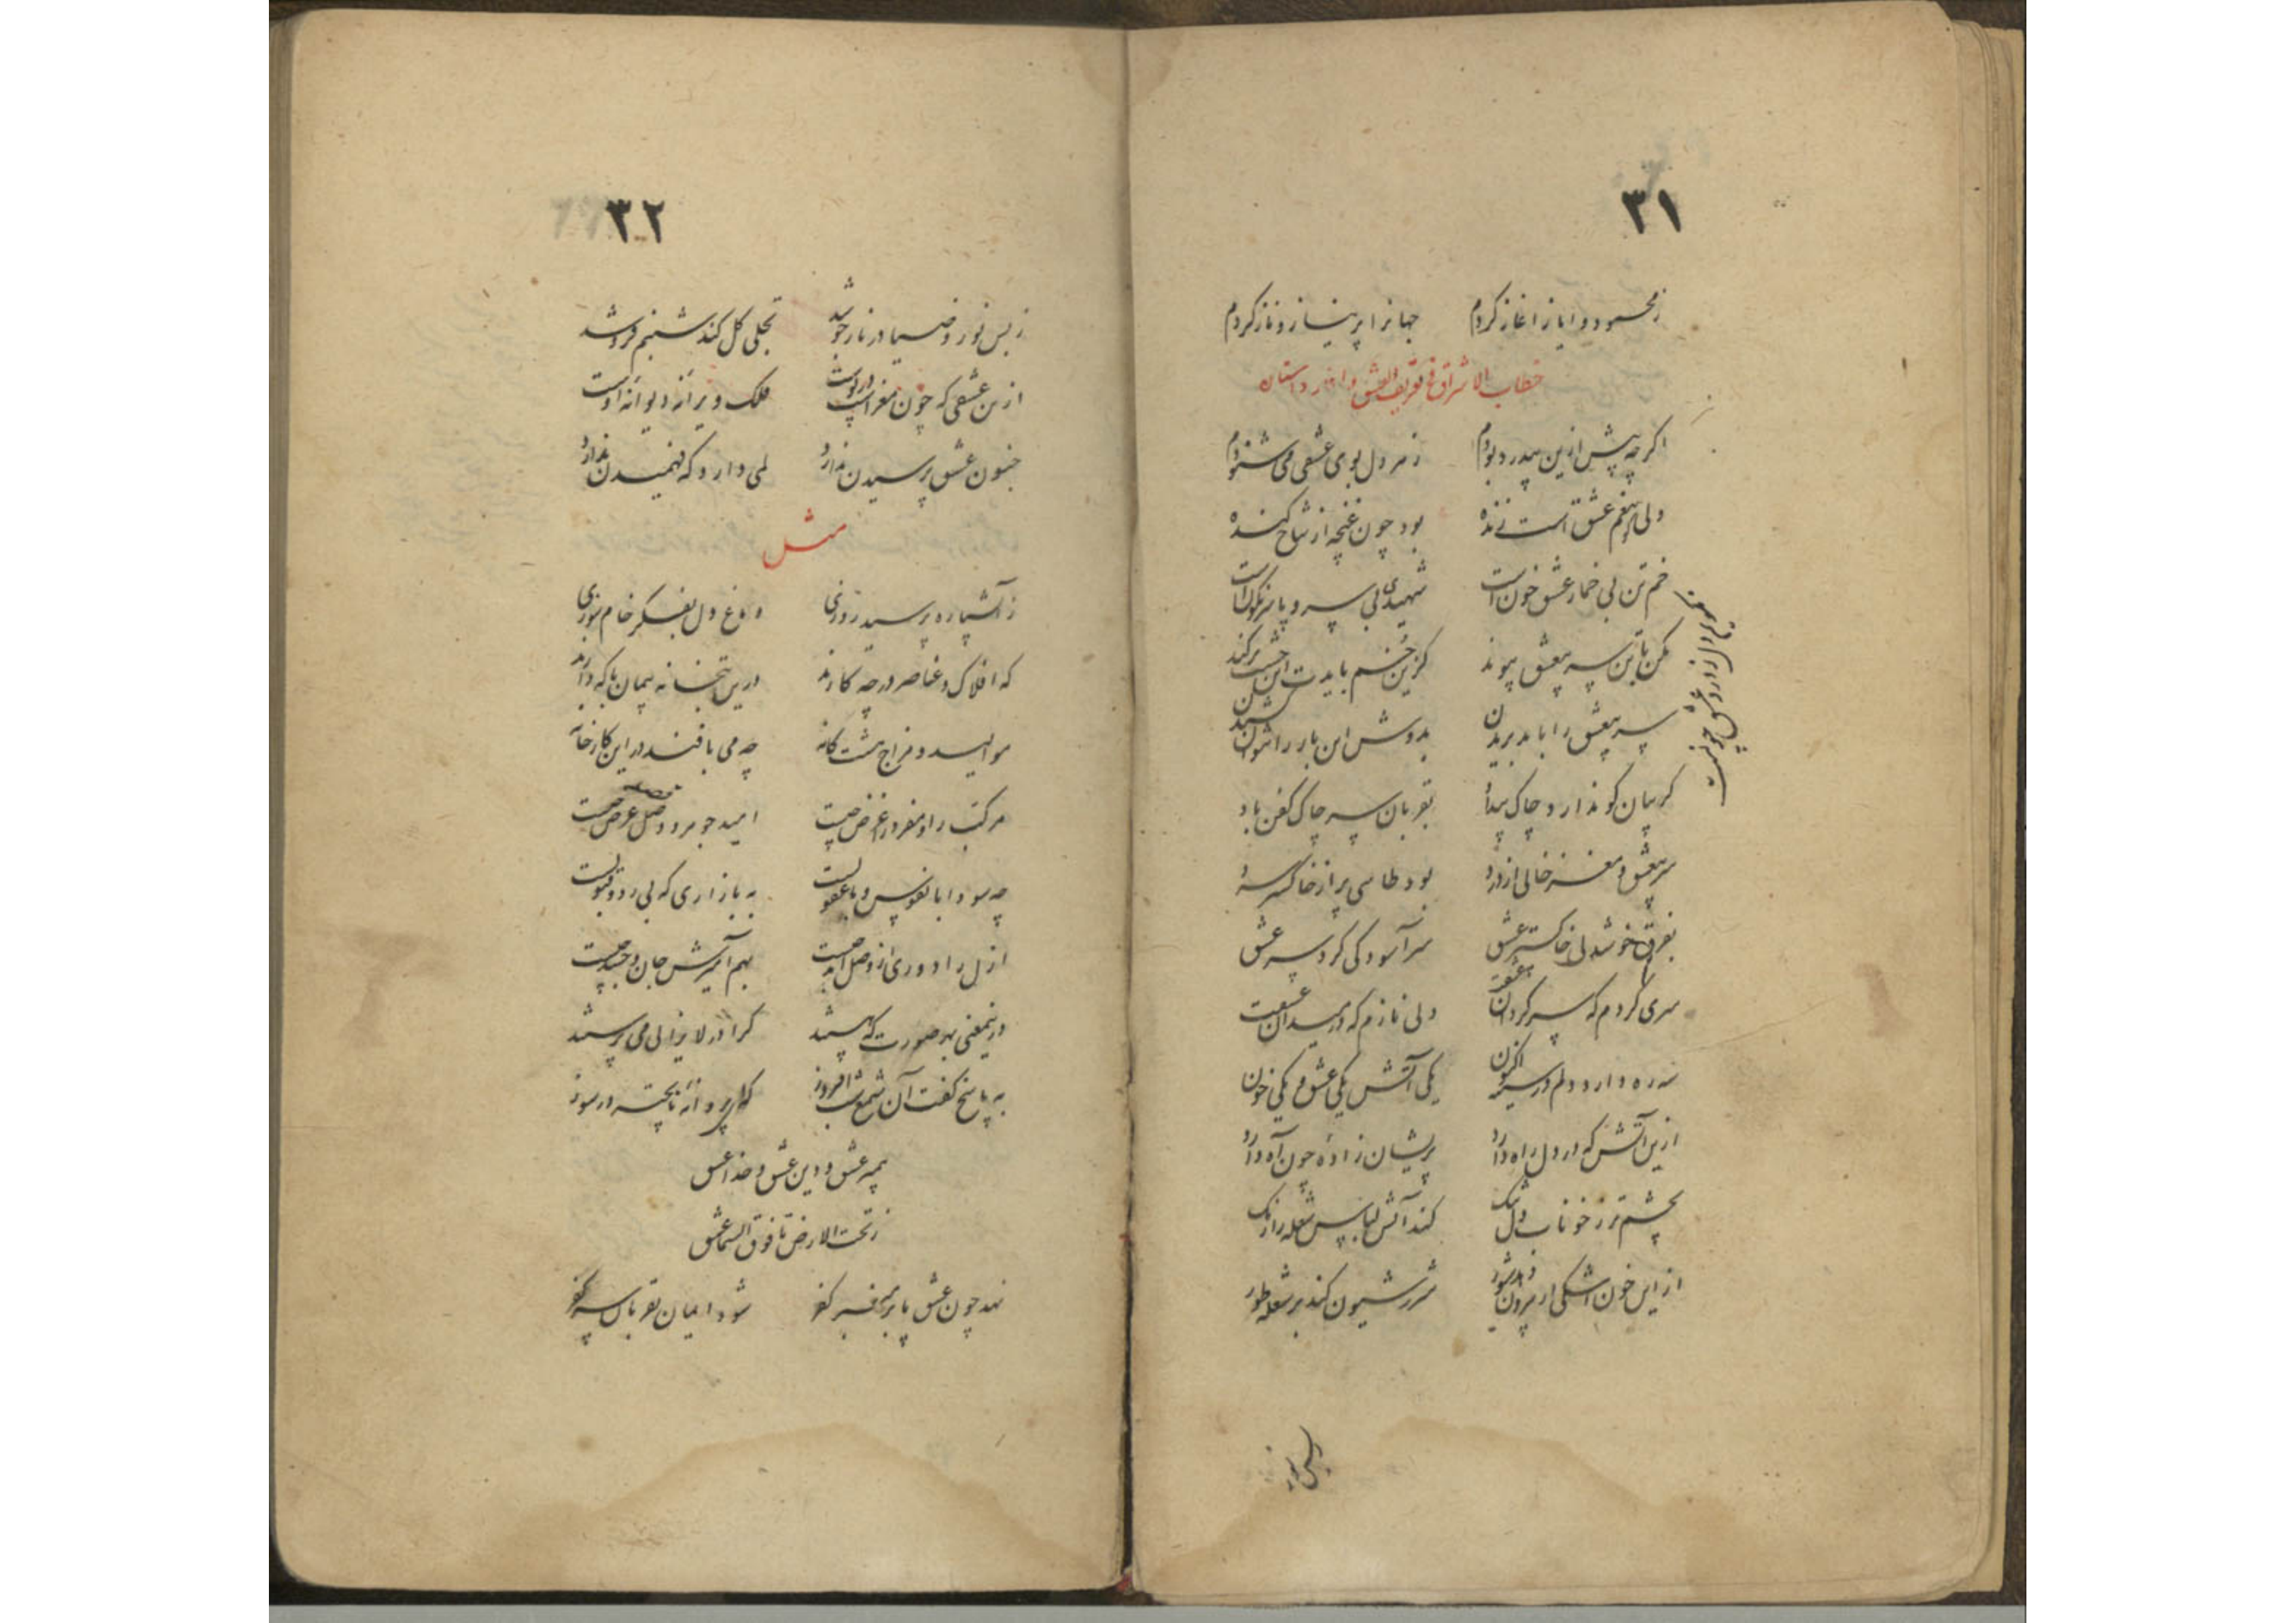 ۳۱
ز محمود و ایاز آغاز کردم جهانرا پر نیاز و ناز کردم
خطاب الاشراق فی تعریف العشق و آغاز داستان
اگر چه پیش ازین بیدرد بودم ز هر دل بوی عشقی می شنودم
ولی بیغم عشق است زنده بود چون غنچه از شاخ کنده
خم تن بی خمار عشق خون است شهیدی بی سر و پا سرنگون است
مکن با تن سر بیعشق پیوند کزین خم بایدت این خشت برکند
سر بیعشق را باید بریدن بدوش این بار را نتوان کشیدن
گریبان کو ندارد چاک پیدا بقربان سر چاک کفن باد
سر بیعشق و مغز خالی از درد بود طاسی پر از خاکستر سرد
بفرق خوشدلی خاکستر عشق سر آسودگی گرد سر عشق
سری کردم که سرگردان عشقت ولی نازم که در میدان عشقت
سه ره دارد دلم در سیر اکنون یکی آتش یکی عشق و یکی خون
ازین آتش که در دل راه دارد پریشان زاده چون آه دارد
بچشم تر ز خوناب دل تنگ کند آتش لباس شعله را رنگ
از این خون اشکی ار بیرون دهد شور شرر شیون کند بر شعله طور
ز بس نور
۳۲
ز بس نور و ضیا در نار جوشد تجلی گل کند شبنم فروشد
ازین عشقی که چون مغز است در پوست فلک ویرانه دیوانه اوست
جنون عشق پرسیدن ندارد لمی دارد که فهمیدن ندارد
مثل
ز آتشپاره پرسید روزی دماغ دل بفکر خام سوزی
که افلاک و عناصر در چه کارند درین بتخانه پیمان با که دارند
موالید و مزاج هشت کانه چه می بافند در این کارخانه
مرکب را و مفرد را غرض چیست امید جوهر و وصل عرض چیست
چه سودا با نفوس و با عقولست به بازاری که بی رد و قبولست
ازل را دوری از وصل ابد چیست بهم آمیزش جان و جسد چیست
در بیمعنی بهر صورت که هستند کرا در لایزالی می پرستند
به پاسخ گفت آن شمع شب افروز که ای پروانه ناپخته در سوز
پیمبر عشق و دین عشق و خدا عشق
ز تحت الارض تا فوق السما عشق
نهد چون عشق پا بر منبر کفر شود ایمان بقربان سر کفر